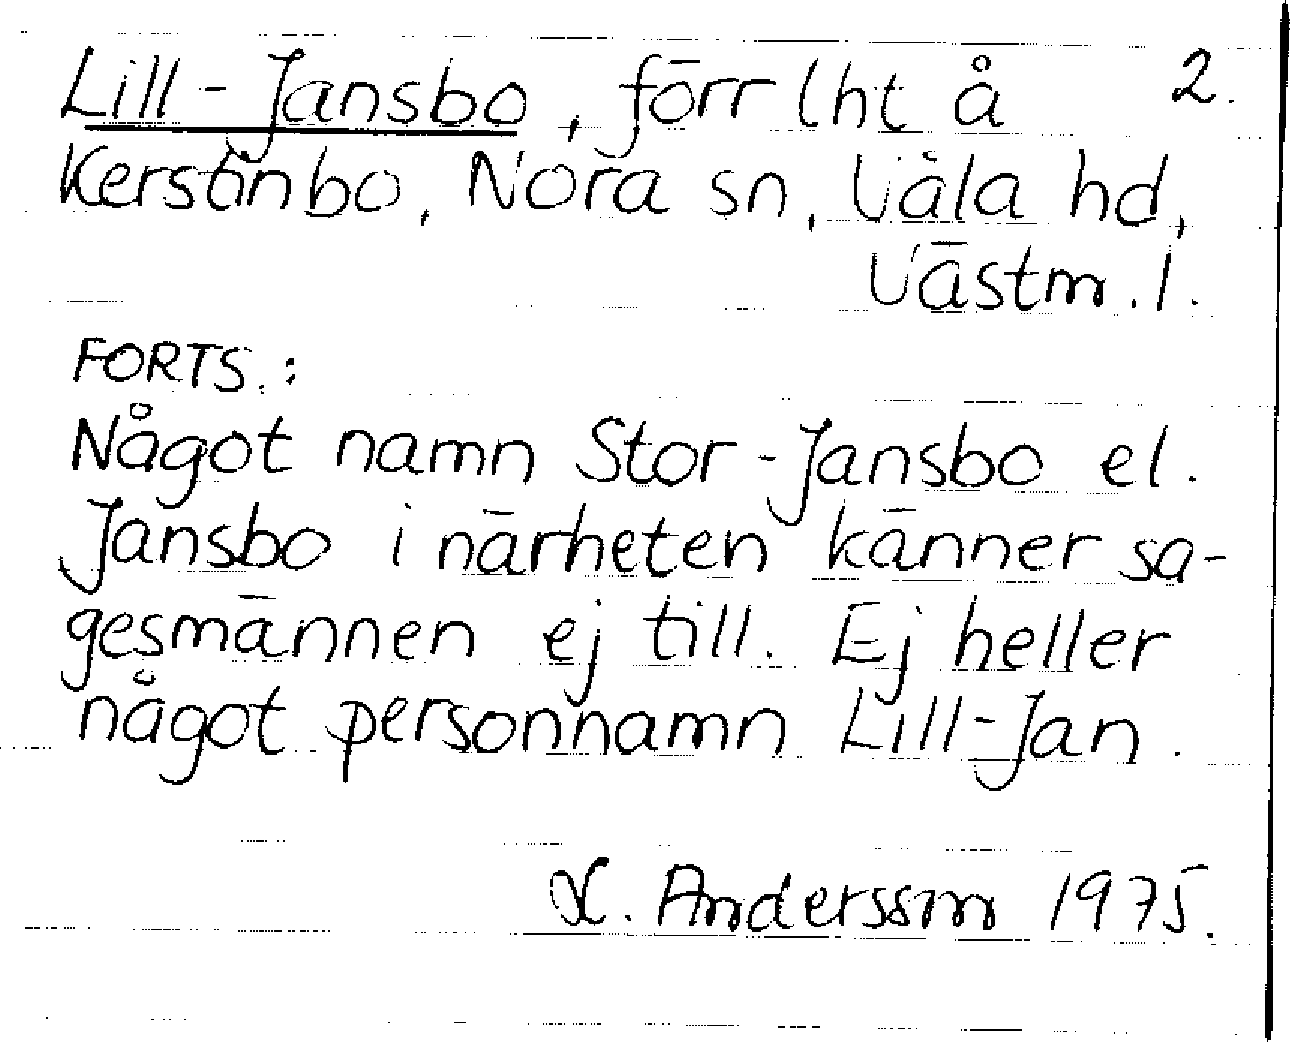 Lill-Jansbo, förr lht å 2.
Kerstinbo, Nora sn, Våla hd,
Västm.l.
FORTS.:
Något namn Stor-Jansbo el.
Jansbo i närheten känner sa-
gesmännen ej till. Ej heller
något personnamn Lill-Jan.
Andersson 1975.